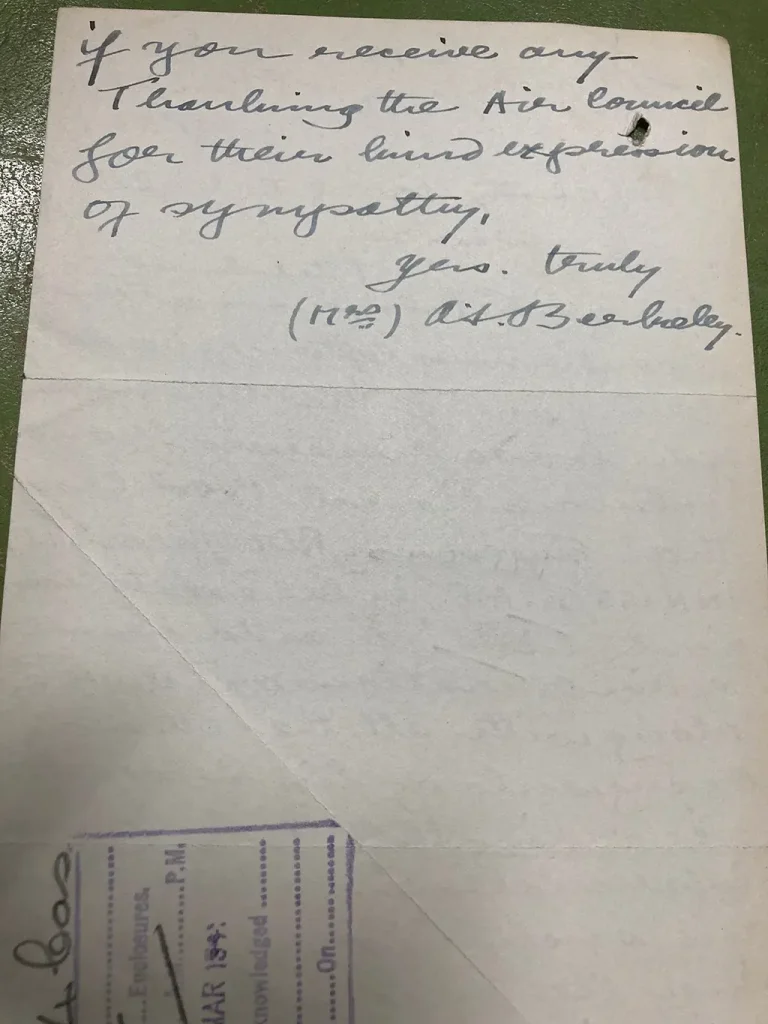 if you receive any—
Thanking the Air Council
for their kind expression
of sympathy,
yrs. truly
(Mrs) A. Berkeley.
Enclosures.
P.M.
MAR 194
knowledged
On